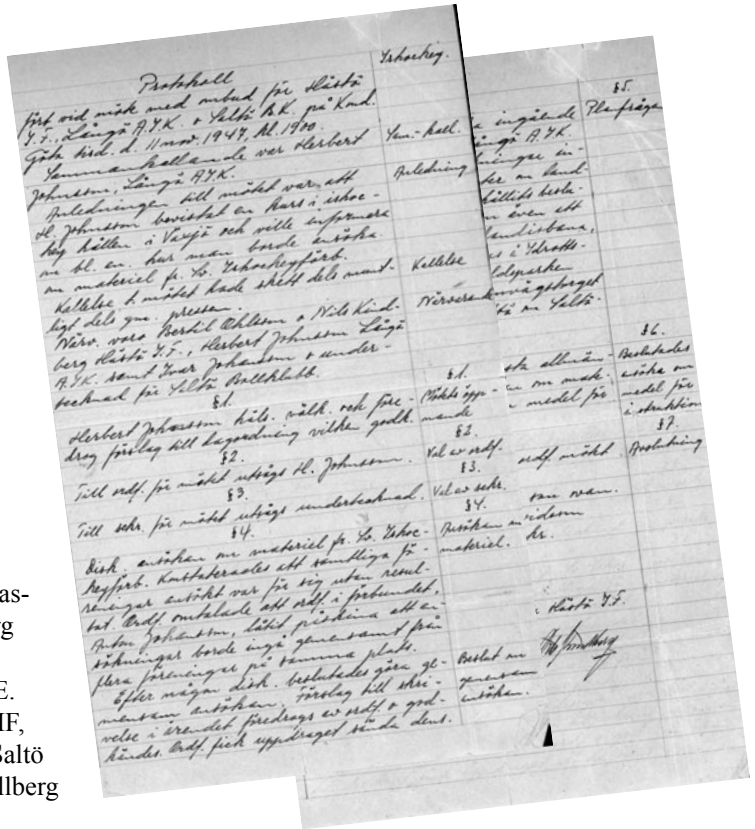 Protokoll
fört vid möte med ombud för Hästö
I.F., Långö A.I.K. o Saltö B.K. på Kond.
Göta tisd. d. 11 nov. 1947, kl. 1900.
Sammankallande var Herbert
Johnsson, Långö AIK.
Anledningen till mötet var att
H. Johnsson bevistat en kurs i ishoc-
key hållen i Växjö och ville informera
om bl. en. hur man borde ansöka
om materiel fr. Sv. Ishockeyförb.
Kallelse t. mötet hade skett dels munt-
ligt dels gm. pressen.
Närv. voro Bertil Ohlsson o Nils Lind-
berg Hästö I.F., Herbert Johnsson Långö
A.I.K. samt Ivar Johansson o under-
tecknad för Saltö Bollklubb.
§1.
Herbert Johnsson häls. välk. och före-
drog förslag till dagordning vilken godk.
§2.
Till ordf. för mötet utsågs H. Johnsson.
§3.
Till sekr. för mötet utsågs undertecknad.
§4.
Disk. ansökan om materiel fr. Sv. Ishoc-
keyförb. Konstaterades att samtliga fö-
reningar ansökt var för sig utan resul-
tat. Ordf. omtalade att ordf. i förbundet,
Anton Johansson, låtit påskina att an-
sökningar borde ingå gemensamt från
flera föreningar på samma plats.
Efter någon disk. beslutades göra ge-
mensam ansökan. Förslag till skri-
velse i ärendet föredrogs av ordf. o god-
kändes. Ordf. fick uppdraget sända dens.
Ishockey.
Sam.-kall.
Anledning
Kallelse
Närvarande
§1.
Mötets öpp-
nande
§2.
Val av ordf.
§3.
Val av sekr.
§4.
Ansökan
materiel.
Beslut om
gemensam
ansökan.
ingående
Långö A.I.K.
ningar in-
om land-
hållits beslu-
även att
landisbana,
i Idrotts-
parken
järnvägstorget
om Saltö.
allmän-
om
medel för
ordf. mötet
som ovan.
Hästö I.F.
§5.
Planfråga
§6.
Beslutades
ansöka om
medel för
instruktion
§7.
Avslutning
as-
rg
E.
IF,
Saltö
llberg